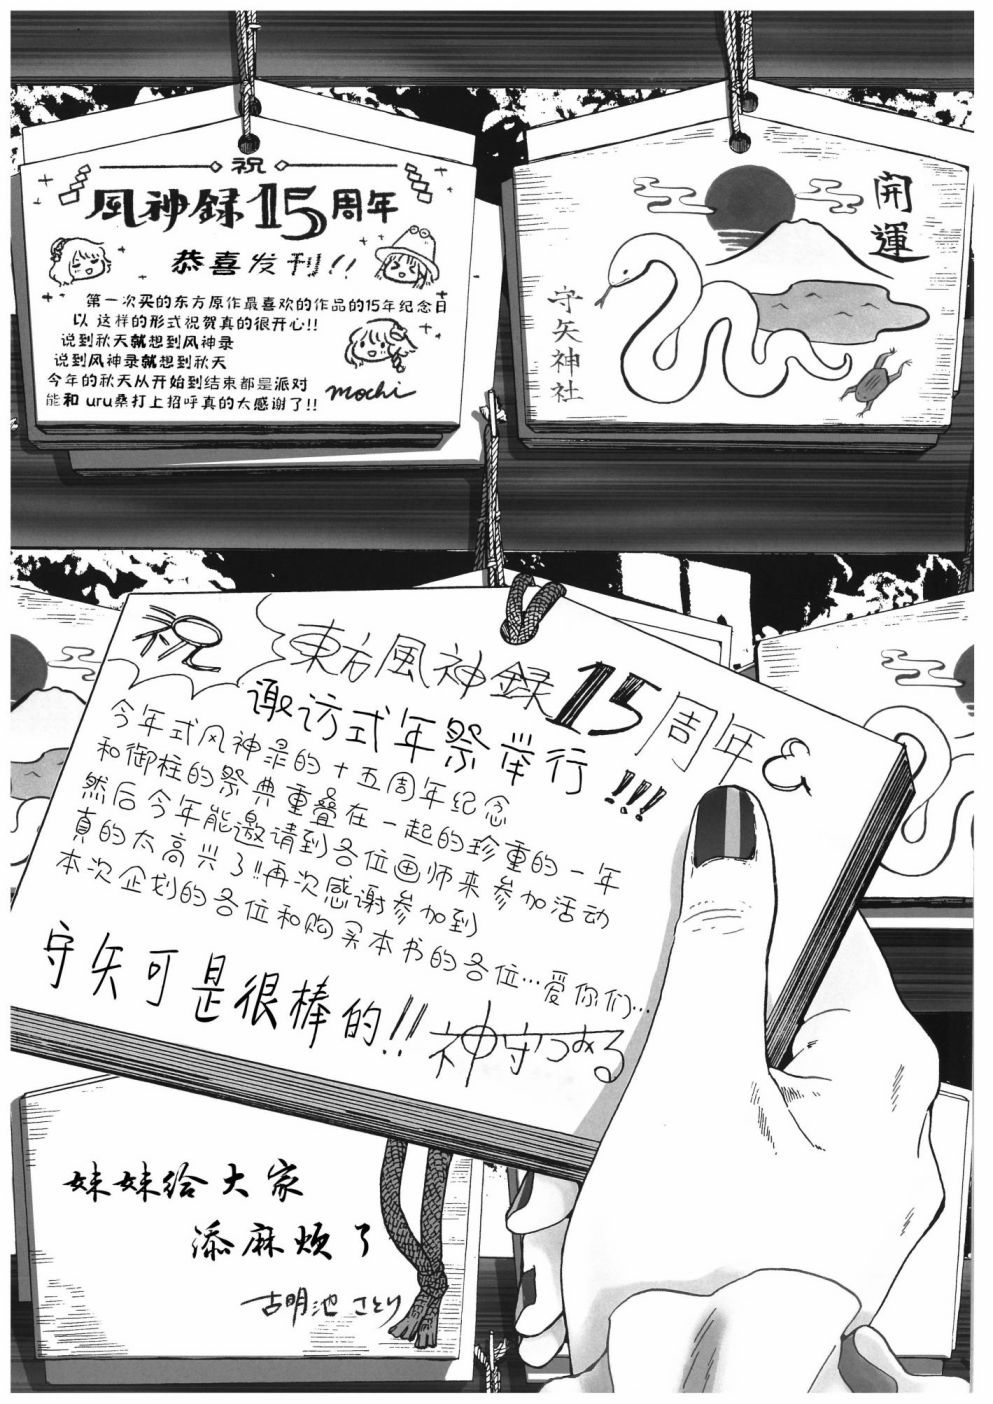 祝
風神録15周年
恭喜发刊!!
第一次买的东方原作最喜欢的作品的15年纪念日
以 这样的形式祝贺真的很开心!!
说到秋天就想到风神录
说到风神录就想到秋天
今年的秋天从开始到结束都是派对
能和 uru桑打上招呼真的太感谢了!!
mochi
開運
守矢神社
祝
東方風神録15周年&
諏访式年祭举行!!!
今年式风神录的十五周年纪念
和御柱的祭典重叠在一起的珍重的一年
然后今年能邀请到各位画师来参加活动
真的太高兴了!!再次感谢参加到
本次企划的各位和购买本书的各位…爱你们…
守矢可是很棒的!!
神守つみる
妹妹给大家
添麻烦了
古明池 さとり